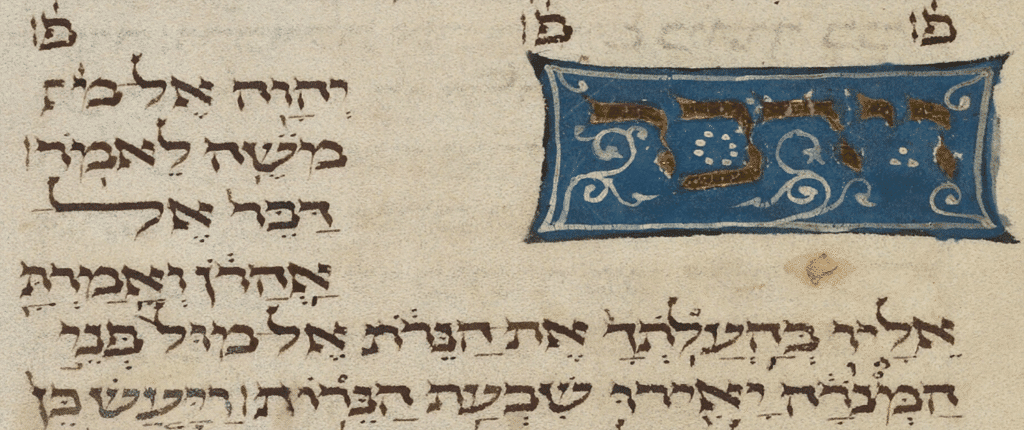 פ פ פ
וידבר יְהוָה אֶל
מֹשֶׁה לֵּאמֹר
דַּבֵּר אֶל
אַהֲרֹן וְאָמַרְתָּ
אֵלָיו בְּהַעֲלֹתְךָ אֶת הַנֵּרֹת אֶל מוּל פְּנֵי
הַמְּנוֹרָה יָאִירוּ שִׁבְעַת הַנֵּרוֹת וַיַּעַשׂ כֵּן